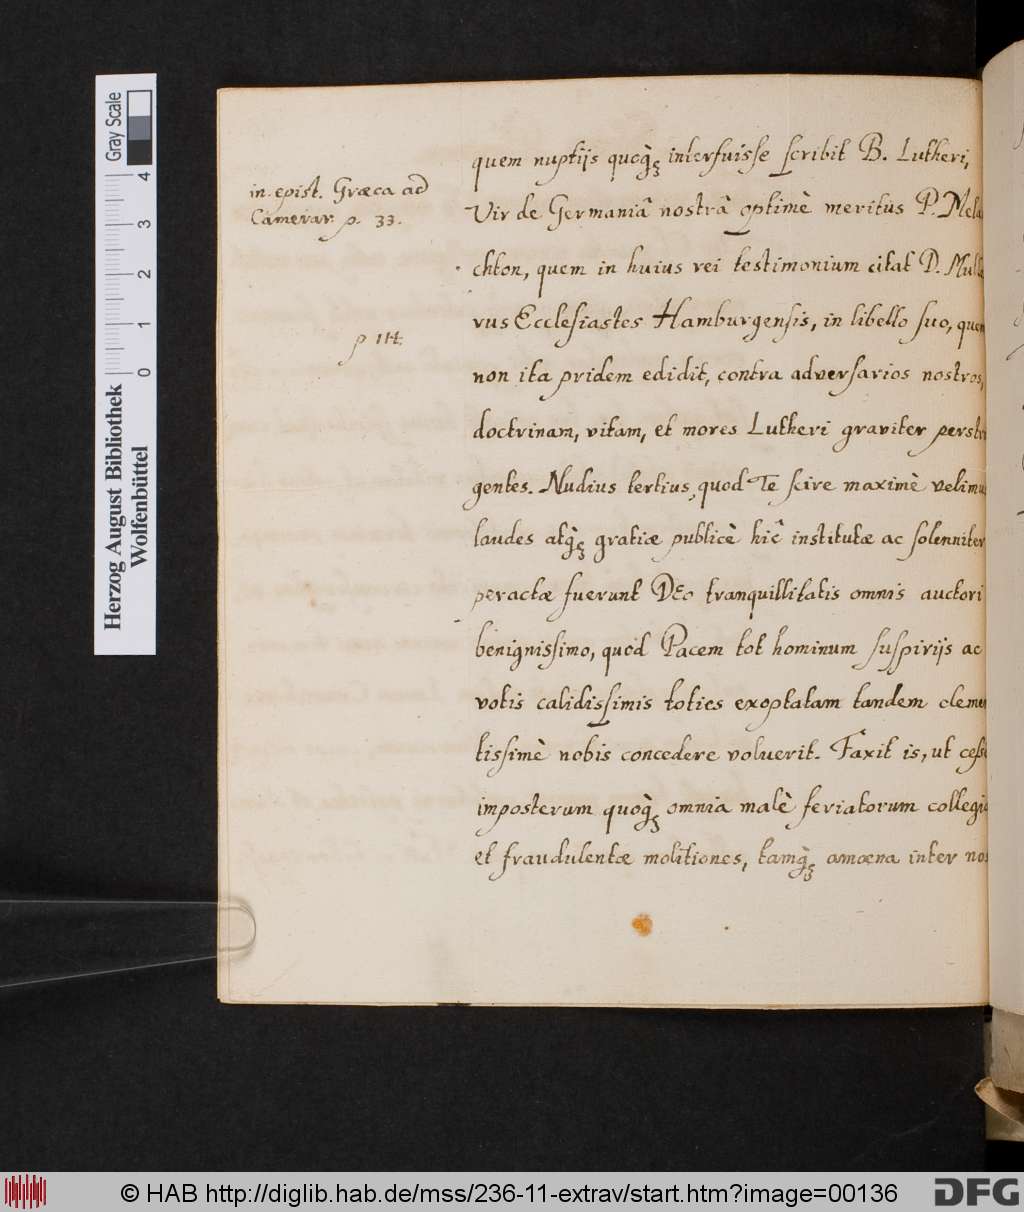 quem nuptijs quoq̀ꝫ interfuisse scribit B. Lutheri,
in. epist. Græca ad
Camerar. p. 33.
Vir de Germaniâ nostrâ optimè meritus P. Mela
chton, quem in huius rei testimonium citat D. Mull
rus Ecclesiastes Hamburgensis, in libello suo, quem
p 114.
non ita pridem edidit, contra adversarios nostros,
doctrinam, vitam, et mores Lutheri graviter perstri
gentes. Nudius tertius, quod Te scire maximè velimus
laudes atq̀ꝫ gratiæ publicè hîc institutæ ac solenniter
peractæ fuerunt Deo tranquillitatis omnis auctori
benignissimo, quod Pacem tot hominum suspirijs ac
votis calidissimis toties exoptatam tandem clemen
tissimè nobis concedere voluerit. Faxit is, ut cess
imposterum quoq̀ꝫ omnia malè feriatorum collegia
et fraudulentæ molitiones, tamq̀ꝫ amœna inter nos
Herzog August Bibliothek
Wolfenbüttel
Gray Scale
0 1 2 3 4
© HAB http://diglib.hab.de/mss/236-11-extrav/start.htm?image=00136
DFG